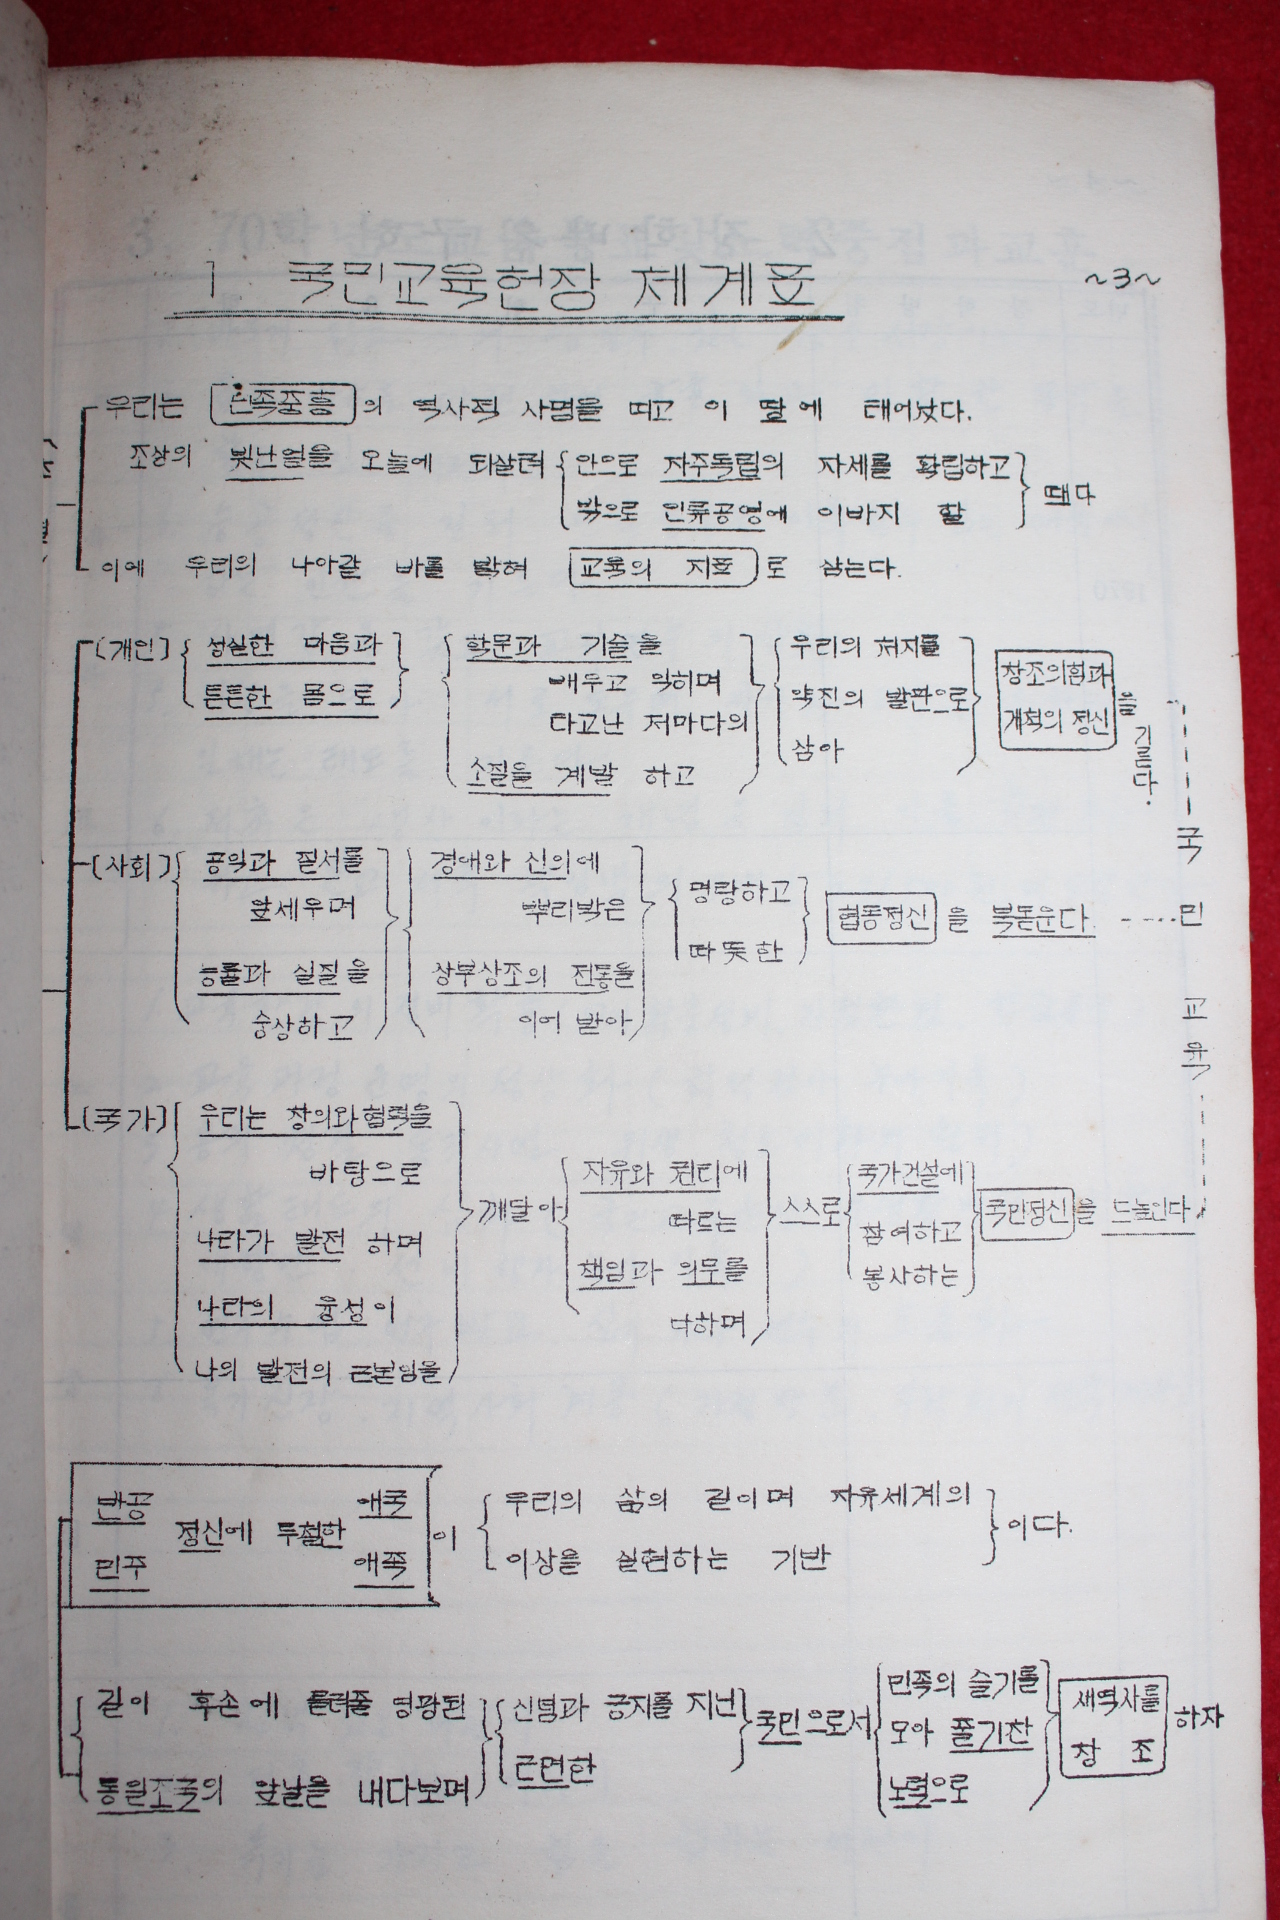 1. 국민교육헌장 체계표
~3~
우리는 민족중흥의 역사적 사명을 띠고 이 땅에 태어났다.
조상의 빛난얼을 오늘에 되살려
안으로 자주독립의 자세를 확립하고
밖으로 인류공영에 이바지 할
때다
이에 우리의 나아갈 바를 밝혀 교육의 지표로 삼는다.
(개인)
성실한 마음과
튼튼한 몸으로
학문과 기술을
배우고 익히며
타고난 저마다의
소질을 계발 하고
우리의 처지를
약진의 발판으로
삼아
창조의힘과
개척의 정신
을 기른다.
(사회)
공익과 질서를
앞세우며
능률과 실질을
숭상하고
경애와 신의에
뿌리박은
상부상조의 전통을
이어 받아
명랑하고
따뜻한
협동정신을 북돋운다.
(국가)
우리는 창의와협력을
바탕으로
나라가 발전 하며
나라의 융성이
나의 발전의 근본임을
깨달아
자유와 권리에
따르는
책임과 의무를
다하며
스스로
국가건설에
참여하고
봉사하는
국민정신을 드높인다
국민교육
반공
민주
정신에 투철한
애국
애족
이
우리의 삶의 길이며 자유세계의
이상을 실현하는 기반
이다.
길이 후손에 물려줄 영광된
통일조국의 앞날을 내다보며
신념과 긍지를 지닌
근면한
국민으로서
민족의 슬기를
모아 줄기찬
노력으로
새역사를
창조
하자